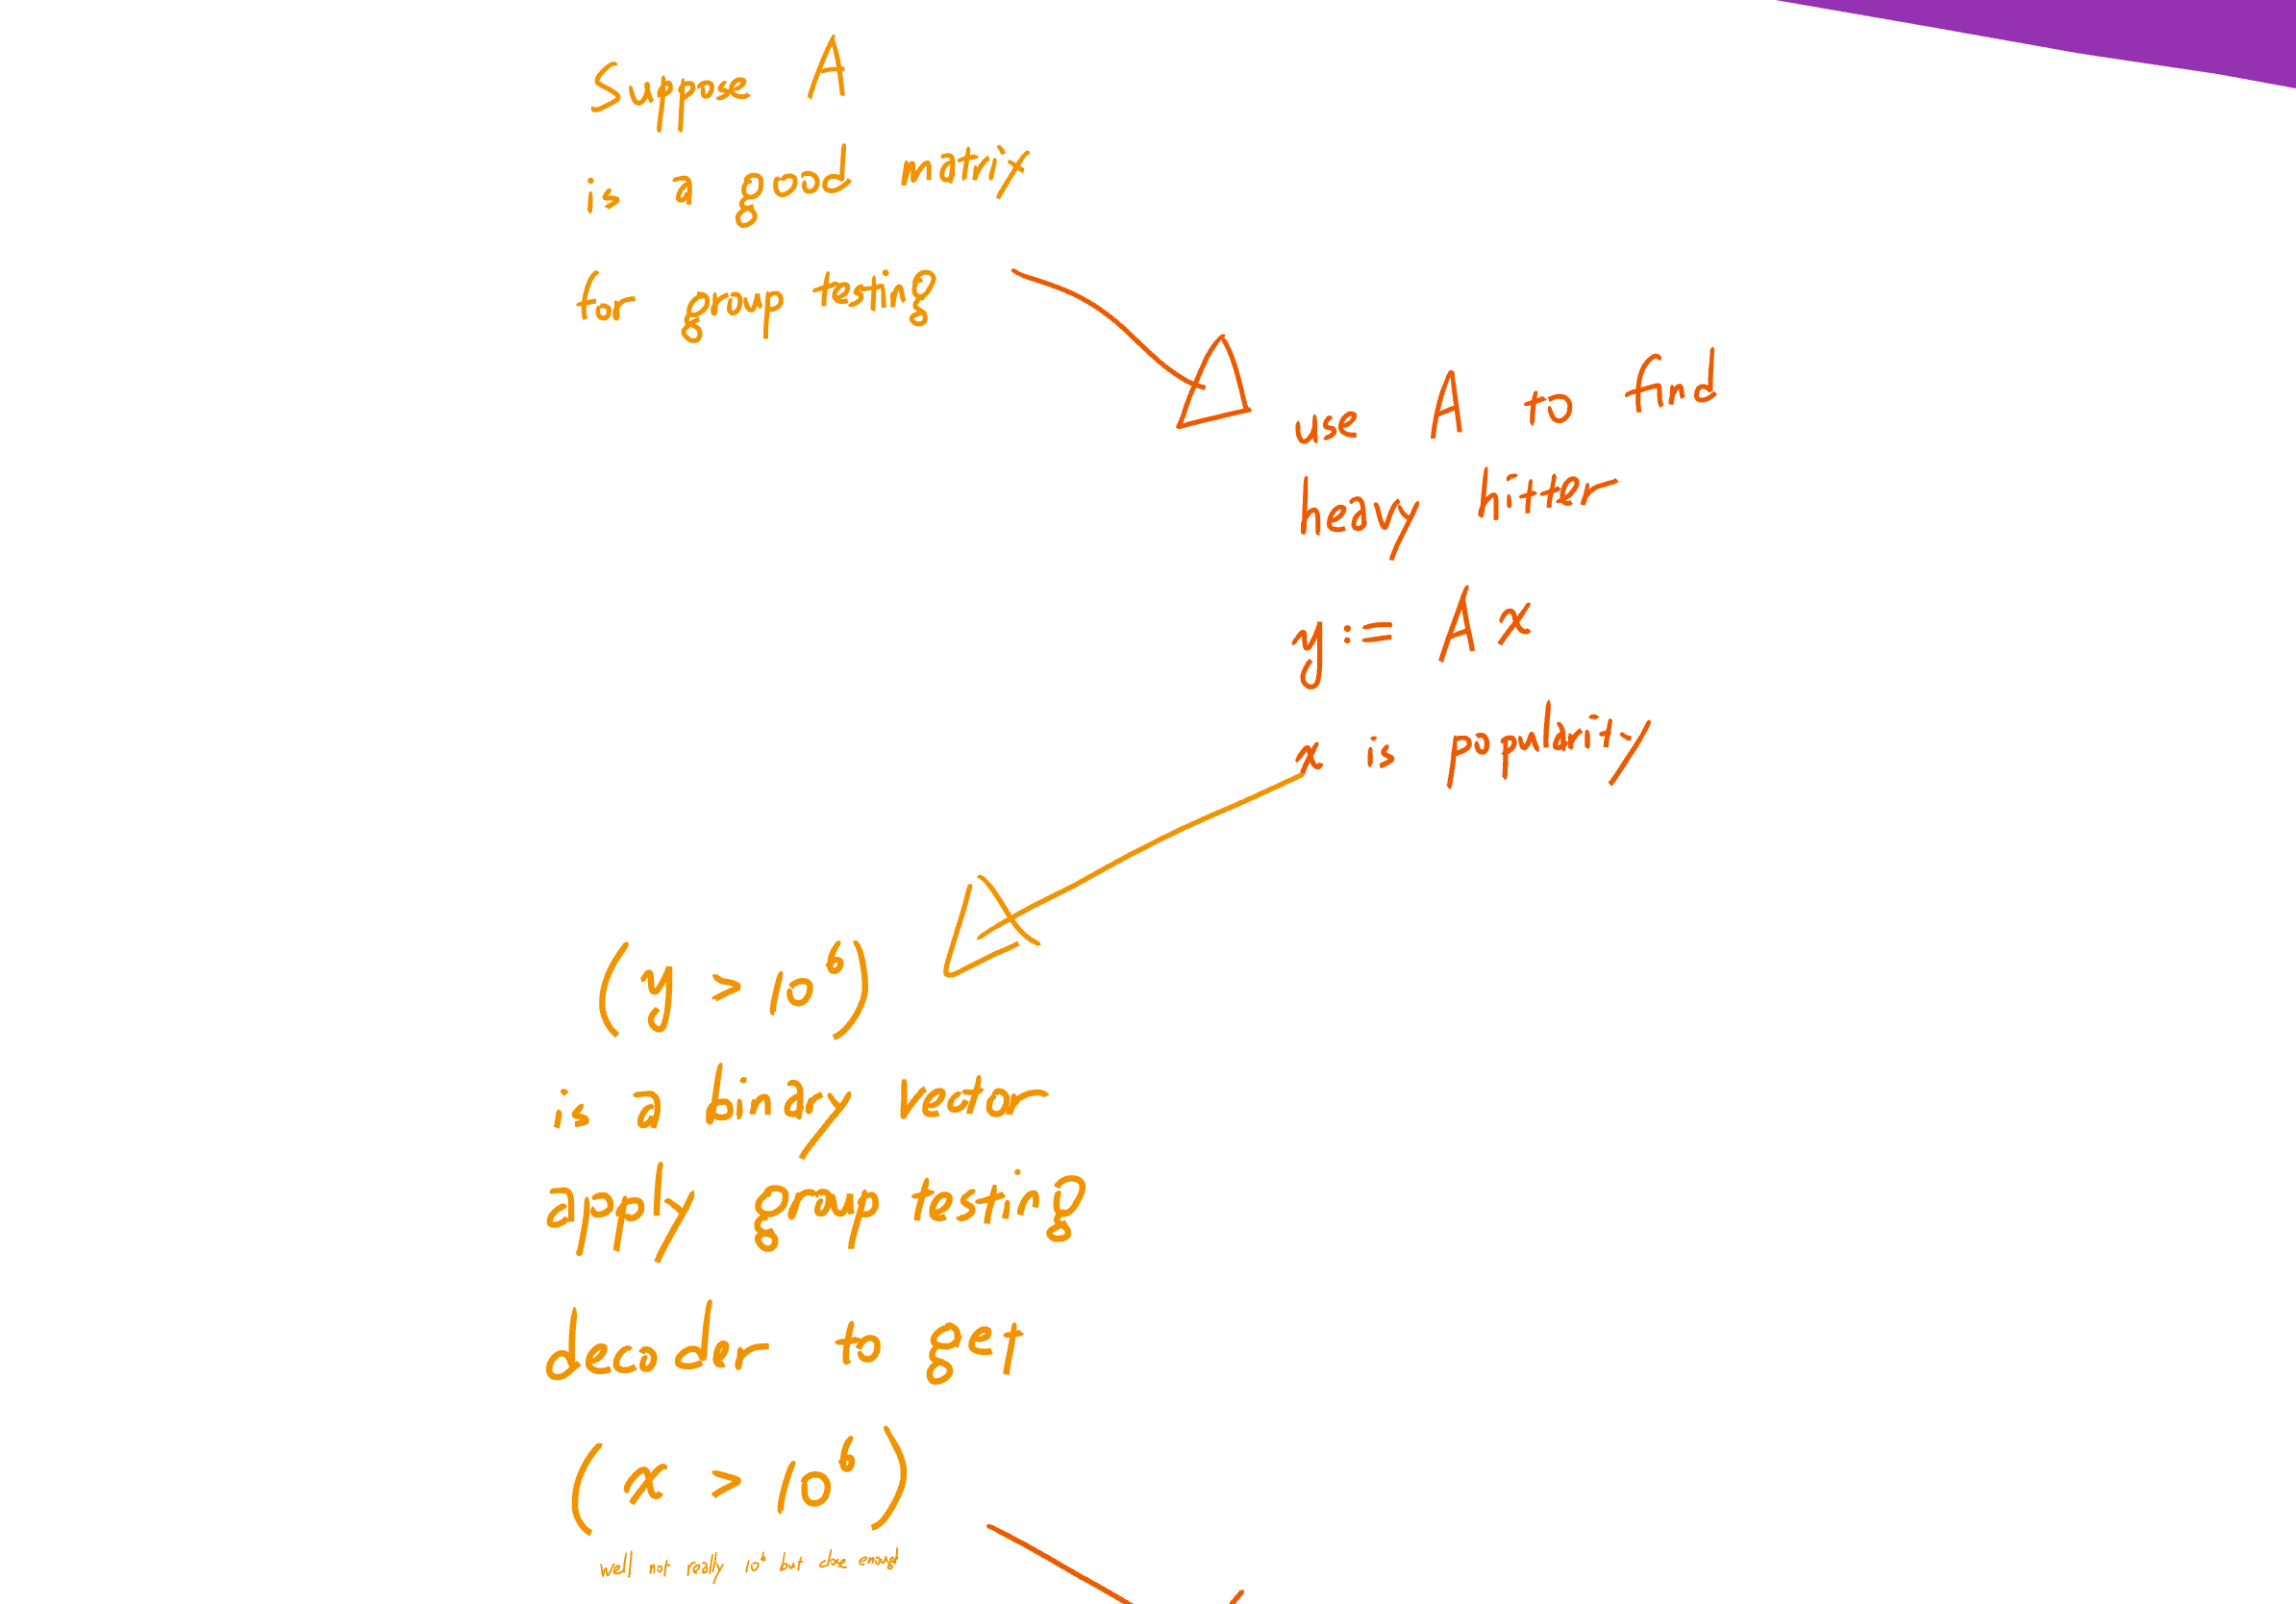 Suppose A
is a good matrix
for group testing
use A to find
heavy hitter
y := A x
x is popularity
(y > 10⁶)
is a binary vector
apply group testing
decoder to get
(x > 10⁶)
well not really 10⁶ but close enough